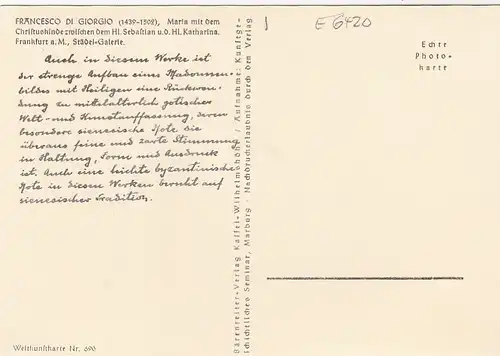 FRANCESCO DI GIORGIO (1439-1502), Maria mit dem
Christuskinde zwischen dem Hl. Sebastian u. d. Hl. Katharina.
Frankfurt a. M., Städel-Galerie.
Auch in diesem Werke ist
der strenge Aufbau eines Madonnen-
bildes mit Heiligen eine Rückwen-
dung zu mittelalterlich gotischer
Welt- und Kunstauffassung, deren
besondere sienesische Note die
überaus feine und zarte Stimmung
in Haltung, Form und Ausdruck
ist. Auch eine leichte byzantinische
Note in diesen Werken beruht auf
sienesischer Tradition.
Welthunstkarte Nr. 896
Bärenreiter-Verlag Kassel-Wilhelmshöhe / Aufnahme: Kunstge-
schichtliches Seminar, Marburg · Nachdruckerlaubnis durch den Verlag
E 6420
Echte
Photo-
karte